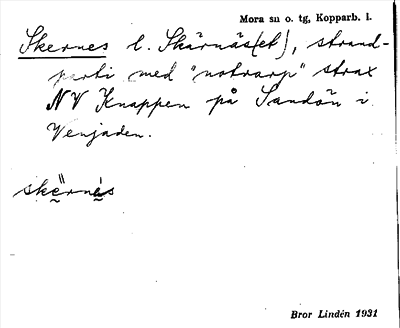 Mora sn o. tg, Kopparb. l.
Skernes l. Skärnäs(et), strand-
parti med "notvarp" strax
NV Knappen på Sandön i
Venjaden.
skë̤rnè̤s
Bror Lindén 1931